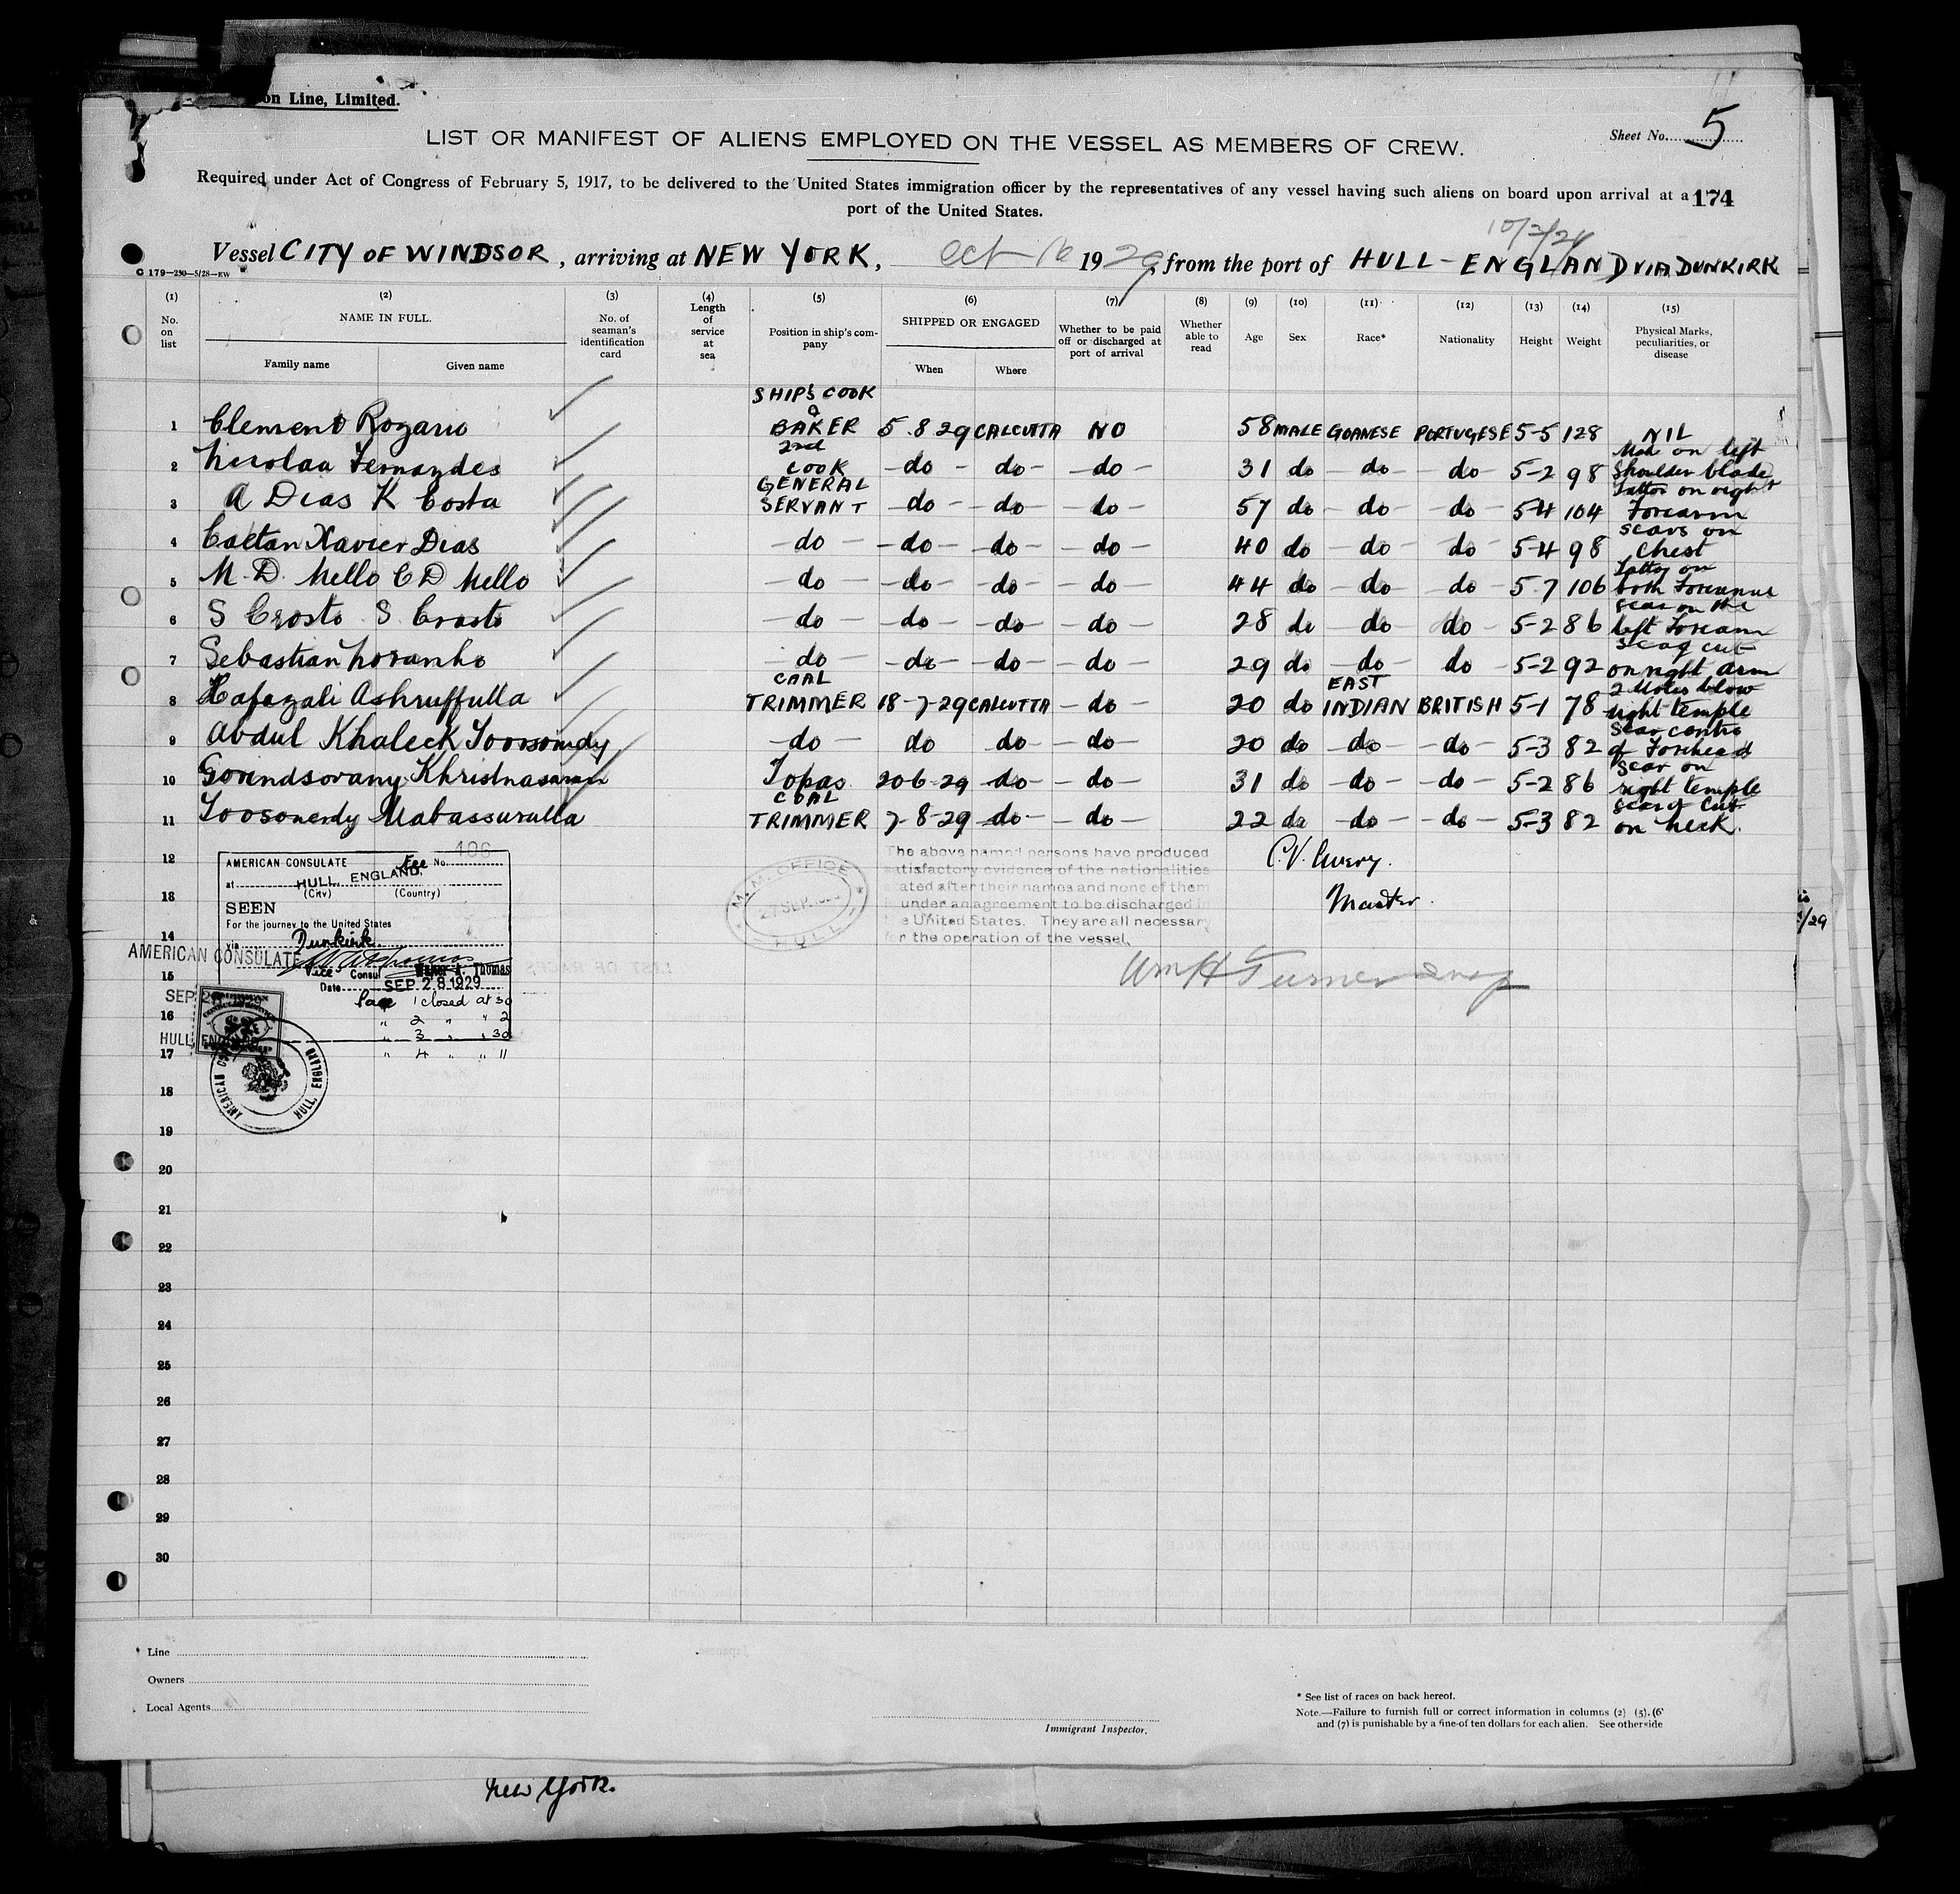 on Line, Limited.
Sheet No. 5
LIST OR MANIFEST OF ALIENS EMPLOYED ON THE VESSEL AS MEMBERS OF CREW.
Required under Act of Congress of February 5, 1917, to be delivered to the United States immigration officer by the representatives of any vessel having such aliens on board upon arrival at a
port of the United States.
174
Vessel CITY OF WINDSOR, arriving at NEW YORK, Oct 16 1929, from the port of HULL - ENGLAND VIA DUNKIRK
G 179-250-5/28-EW
(1) (2) (3) (4) (5) (6) (7) (8) (9) (10) (11) (12) (13) (14) (15)
No. on list
NAME IN FULL.
Family name Given name
No. of seaman's identification card
Length of service at sea
Position in ship's company
SHIPPED OR ENGAGED
When Where
Whether to be paid off or discharged at port of arrival
Whether able to read
Age Sex Race* Nationality Height Weight
Physical Marks, peculiarities, or disease
1 Clement Rozario SHIP'S COOK & BAKER 5.8 29 CALCUTTA NO 58 MALE GOANESE PORTUGESE 5-5 128 NIL
2 Nicolaa Fernazdes 2nd COOK do do do 31 do do do 5-2 98 Mole on left Shoulder blade
3 A Dias K Costa GENERAL SERVANT do do do 57 do do do 5-4 104 Tattoo on right Forearm
4 Caetan Xavier Dias do do do do 40 do do do 5-4 98 scars on Chest
5 M. D. Mello C D Mello do do do do 44 do do do 5-7 106 Tattoo on both Forearms
6 S Crosto S Crosto do do do do 28 do do do 5-2 86 scar on the left Forearm
7 Sebastian Noranho do do do do 29 do do do 5-2 92 Scar cut on right arm
8 Hafazali Ashruffulla COAL TRIMMER 18-7-29 CALCUTTA do 20 do EAST INDIAN BRITISH 5-1 78 2 Moles blow right temple
9 Abdul Khaleck Toorsomdy do do do do 20 do do do 5-3 82 Scar centre of Forehead
10 Govindsorany Khristnasaram Topas 20 6-29 do do 31 do do do 5-2 86 Scar on right temple
11 Toosonerdy Mabassurulla COAL TRIMMER 7-8-29 do do 22 do do do 5-3 82 scar of Cut on neck.
12
13
14
15
16
17
18
19
20
21
22
23
24
25
26
27
28
29
30
AMERICAN CONSULATE Fee No. 406
at HULL, ENGLAND.
(City) (Country)
SEEN
For the journey to the United States
via Dunkirk
Vice Consul
Date SEP 28 1929
Page 1 closed at 30
" 2 " " 2
" 3 " " 30
" 4 " " 11
AMERICAN CONSULATE
SEP 28
HULL, ENGLAND
HULL, ENGLAND
M. M. OFFICE
27 SEP
HULL
The above named persons have produced
satisfactory evidence of the nationalities
stated after their names and none of them
under an agreement to be discharged in
the United States. They are all necessary
for the operation of the vessel.
Master.
Wm H Turner
Line
Owners
Local Agents
Immigrant Inspector.
* See list of races on back hereof.
Note.—Failure to furnish full or correct information in columns (2) (5), (6)
and (7) is punishable by a fine of ten dollars for each alien. See otherside
New York.